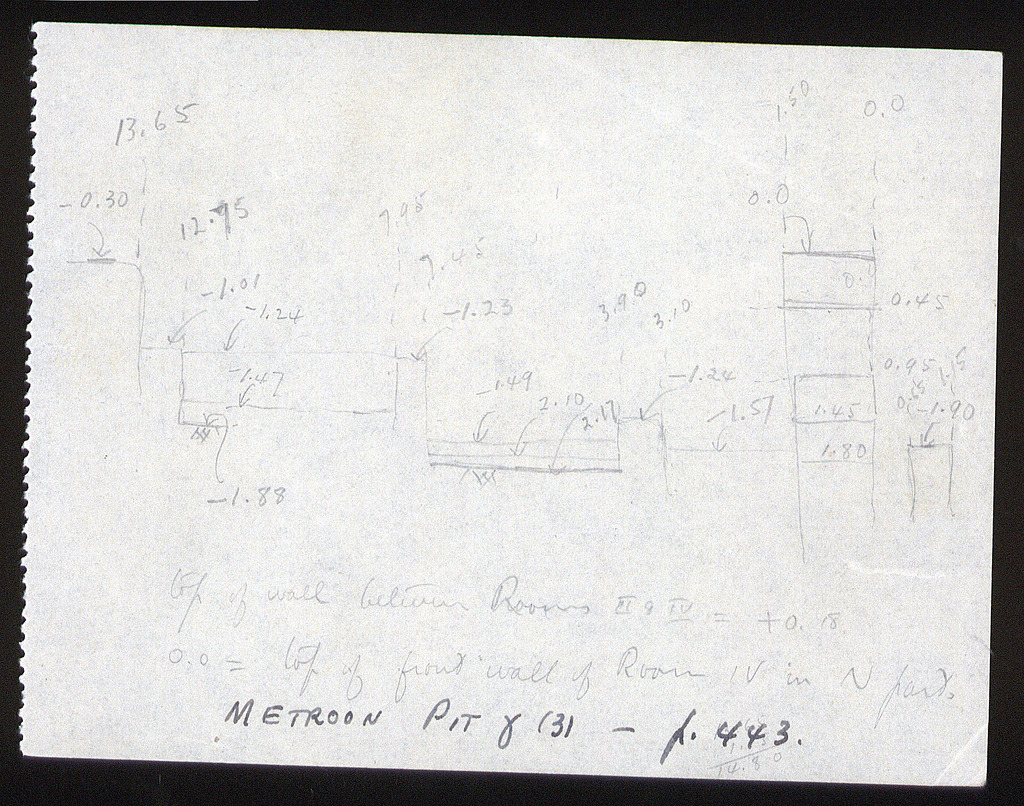 1.50
0.0
13.65
-0.30
0.0
12.95
7.95
7.45
-1.01
-1.24
-1.23
3.90
3.10
0.
0.45
-1.47
-1.49
2.10
2.17
-1.24
-1.57
0.95
1.15
1.45
-1.90
1.80
-1.88
top of wall between Rooms II & IV = +0.18
0.0 = top of front wall of Room IV in N part.
METROON PIT γ (3) — p. 443.
14.80